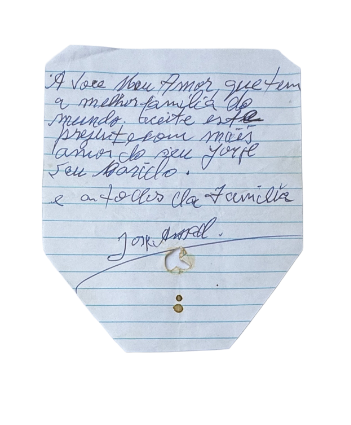 A voce Meu Amor, que tem
a melhor família do
mundo. aceite este
presente com mais
amor do seu Jorge
seu Marido.
e a todos da Família